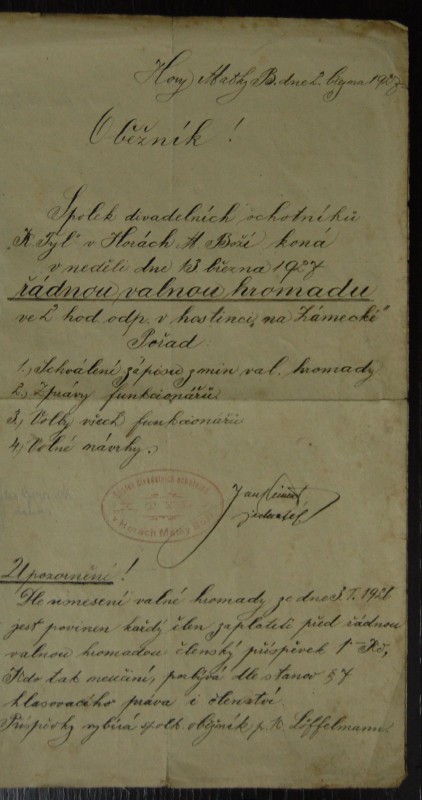 Hory Matky B. dne 2. března 1927
Oběžník!
Spolek divadelních ochotníků
„K Tyl" v Horách M Boží koná
v neděli dne 13 března 1927
řádnou valnou hromadu
ve 2 hod. odp. v hostinci „na Zámecké"
Pořad:
1.) Schválení zápisu z min val. hromady
2.) Zprávy funkcionářů
3.) Volby všech funkcionářů
4.) Volné návrhy.
v Horách Matky Boží
Jan
jednatel
Upozornění!
Dle usnesení valné hromady ze dne 3. I. 1926
jest povinen každý člen zaplatiti před řádnou
valnou hromadou členský příspěvek 1 Kč,
Kdo tak neučiní, pozbývá dle stanov § 7
hlasovacího práva i členství.
Příspěvky vybírá spolk. obĕžník p. K. Löffelmann.